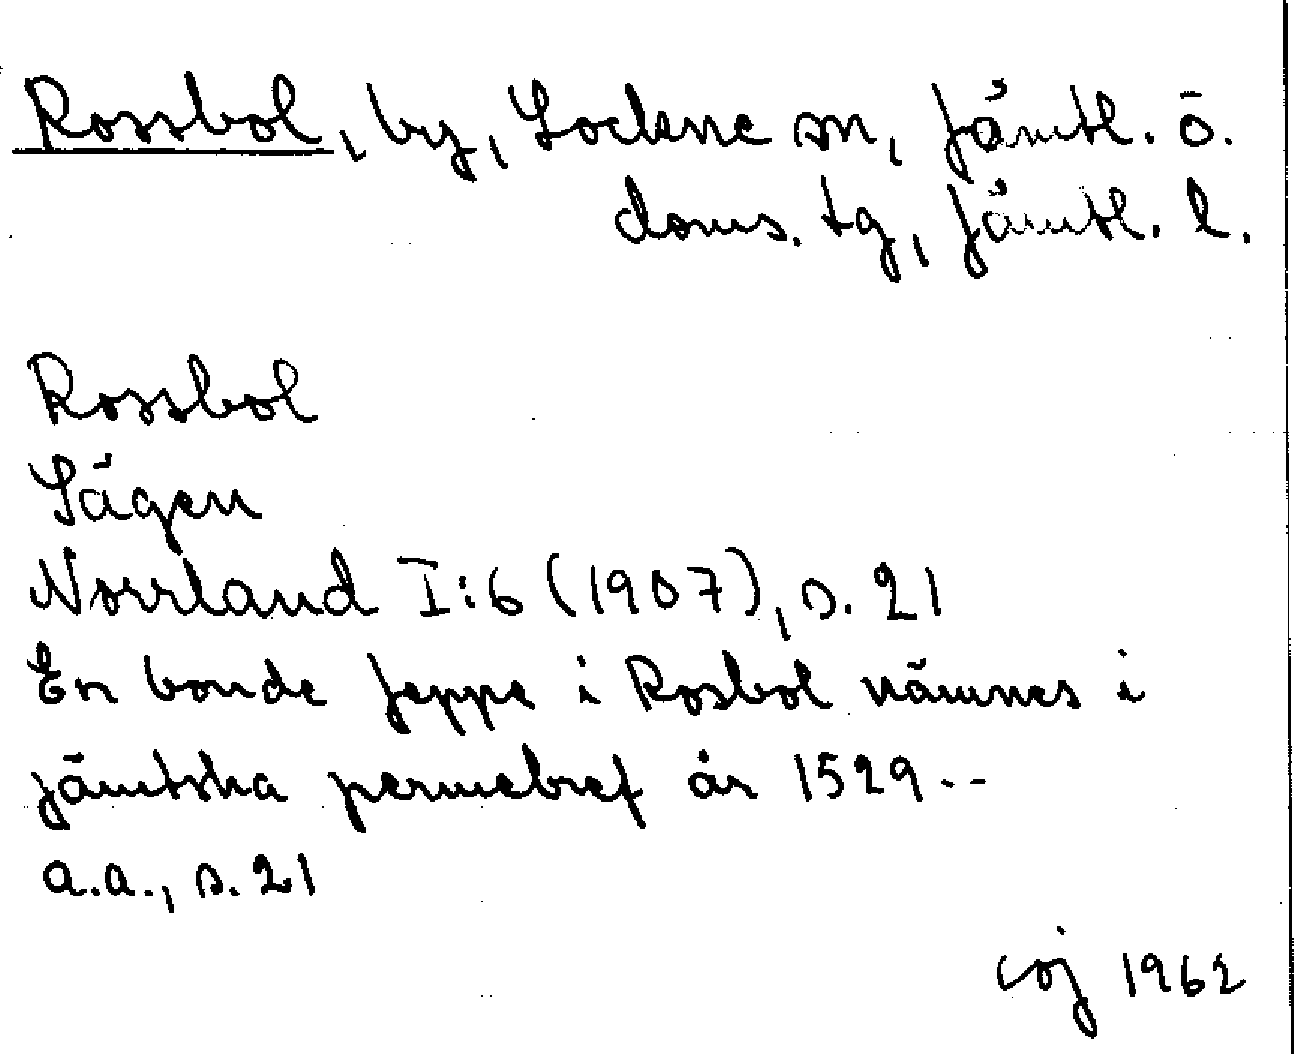 Rossbol, by, Lockne sn, Jämtl. ö.
doms. tg, Jämtl. l.
Rossbol
Sägen
Norrland I:6 (1907), s. 21
En bonde Jeppe i Rosbol nämnes i
jämtska permebref år 1529--
a.a., s. 21
1962